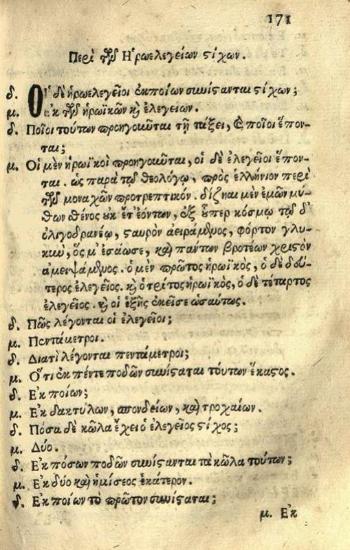 171
Περὶ τῶν Ἡρωελεγείων στίχων.
δ. Οἱ δὲ ἡρωελεγεῖοι ἐκ ποίων συνίστανται στίχων;
μ. Ἐκ τῶν ἡρωϊκῶν καὶ ἐλεγείων.
δ. Ποῖοι τούτων προηγοῦνται τῇ τάξει, καὶ ποῖοι ἕπον-
ται;
μ. Οἱ μὲν ἡρωϊκοὶ προηγοῦνται, οἱ δὲ ἐλεγεῖοι ἕπον-
ται. ὡς παρὰ τῷ θεολόγῳ, πρὸς ἑλλήνιον περὶ
τῶν μοναχῶν προτρεπτικόν. δίζηαι μὲν ἐμῶν μύ-
θων σθένος οὐκ ἔτ' ἐόντων, ἐξ ὑπὲρ κόσμῳ τῷδ'
ὀλιγοδρανέω, σταυρὸν ἀειράμενος, φόρτον γλυ-
κὺν, ὅς μ' ἐσάωσε, καὶ πάντων βροτέων χριστὸν
ἀμειψάμενος. ὁ μὲν πρῶτος ἡρωϊκὸς, ὁ δὲ δεύ-
τερος ἐλεγεῖος. καὶ ὁ τρίτος ἡρωϊκὸς, ὁ δὲ τέταρτος
ἐλεγεῖος. καὶ οἱ ἑξῆς ἐκεῖσε ὡσαύτως.
δ. Πῶς λέγονται οἱ ἐλεγεῖοι;
μ. Πεντάμετροι.
δ. Διατὶ λέγονται πεντάμετροι;
μ. Ὅτι ἐκ πέντε ποδῶν συνίσταται τούτων ἕκαστος.
δ. Ἐκ ποίων;
μ. Ἐκ δακτύλων, σπονδείων, καὶ τροχαίων.
δ. Πόσα δὲ κῶλα ἔχει ὁ ἐλεγεῖος στίχος;
μ. Δύο.
δ. Ἐκ πόσων ποδῶν συνίστανται τὰ κῶλα τούτων;
μ. Ἐκ δύο καὶ ἡμίσεος ἑκάτερον.
δ. Ἐκ ποίων τὸ πρῶτον συνίσταται;
μ. Ἐκ